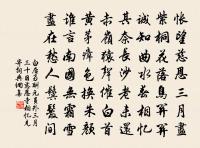 悵望慈恩三月盡
紫桐花落鳥關關
誠知曲水春相憶
其奈長沙老未還
赤嶺猿聲催白首
黃茅瘴色換朱顏
誰言南國無霜雪
盡在愁人鬢髮間
白居易酬元員外三月
三十日慈恩寺相憶見
寄